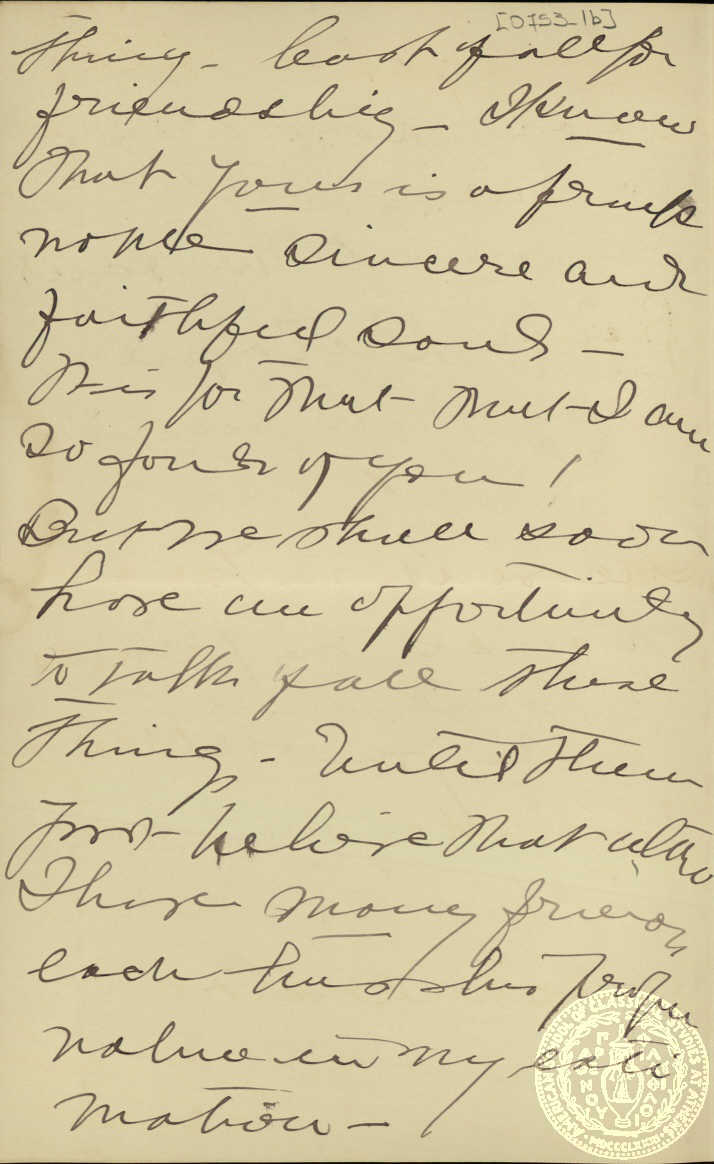 [0753_1b]
thing - least of all for
friendship - I know
that yours is a frank
noble sincere and
faithful soul -
It is for that - that I am
so fond of you!
But we shall soon
have an opportunity
to talk of all these
things - Until then
just believe that altho
I have many friends
each has his proper
value in my esti
mation -
AMERICAN SCHOOL OF CLASSICAL STUDIES AT ATHENS
MDCCCLXXXI